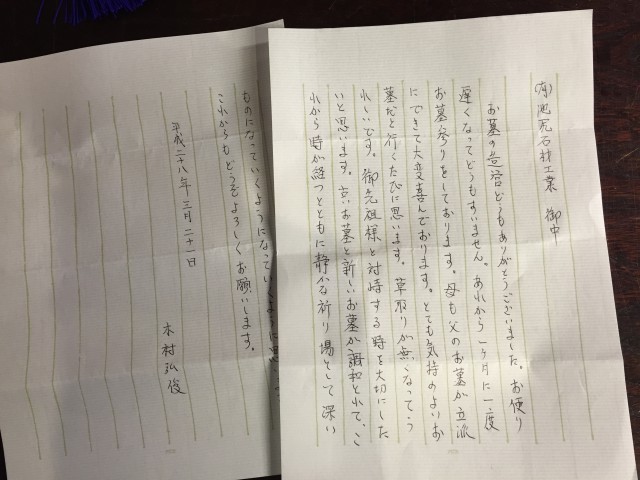 (有)池尻石材工業 御中
お墓の造営どうもありがとうございました。お便り
遅くなってどうもすいません。あれから一ヶ月に一度
お墓参りをしております。母も父のお墓が立派
にできて大変喜んでおります。とても気持のよいお
墓だと行くたびに思います。草取りが無くなってう
れしいです。御先祖様と対峙する時を大切にした
いと思います。古いお墓と新しいお墓が調和とれて、こ
れから時が経つとともに静かな祈り場として深い
ものになっていくようになっていくように思
これからもどうぞよろしくお願いします。
平成二八年三月二一日
木村弘俊